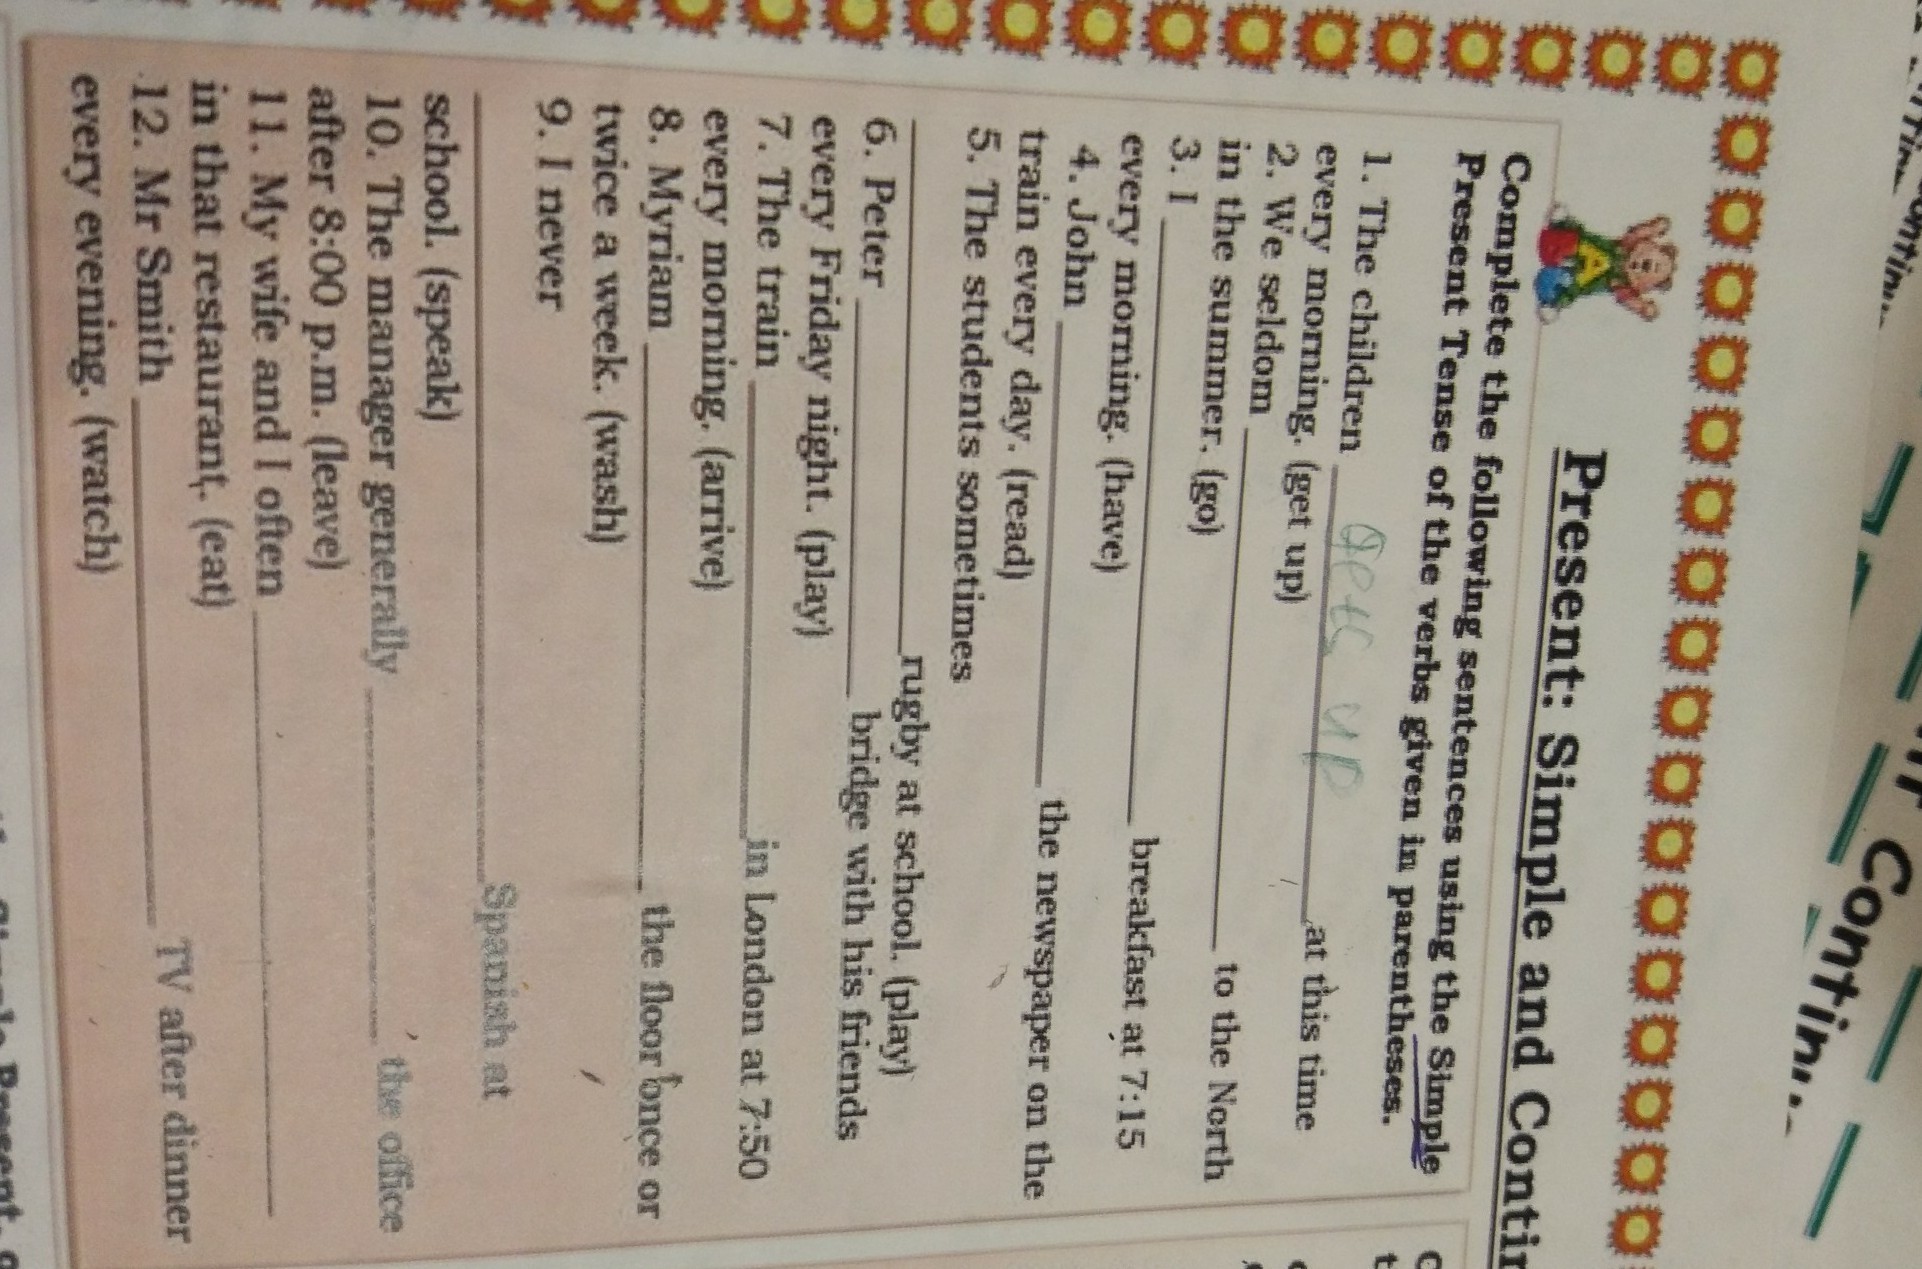 Present: Simple and Contin
Complete the following sentences using the Simple
Present Tense of the verbs given in parentheses.
1. The children gets up at this time
every morning. (get up)
2. We seldom ____ to the North
in the summer. (go)
3. I ____ breakfast at 7:15
every morning. (have)
4. John ____ the newspaper on the
train every day. (read)
5. The students sometimes
____ rugby at school. (play)
6. Peter ____ bridge with his friends
every Friday night. (play)
7. The train ____ in London at 7:50
every morning. (arrive)
8. Myriam ____ the floor once or
twice a week. (wash)
9. I never
____ Spanish at
school. (speak)
10. The manager generally ____ the office
after 8:00 p.m. (leave)
11. My wife and I often ____
in that restaurant. (eat)
12. Mr Smith ____ TV after dinner
every evening. (watch)